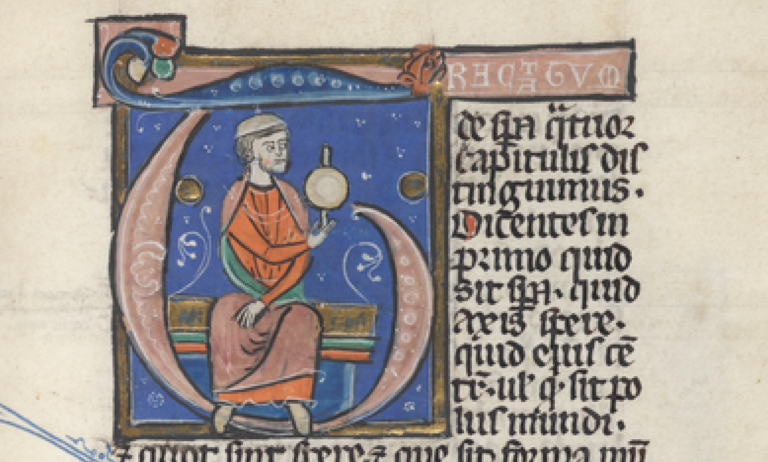 TRACTATUM
de spa q̃tuor
capitulis dis
tinguimus.
Dicentes in
primo quid
sit spa. quid
axis spere.
quid eius cẽ
tr̃. ul' q. sit po
lus mundi.
⁊ quot sint spere. ⁊ que sit forma mũ